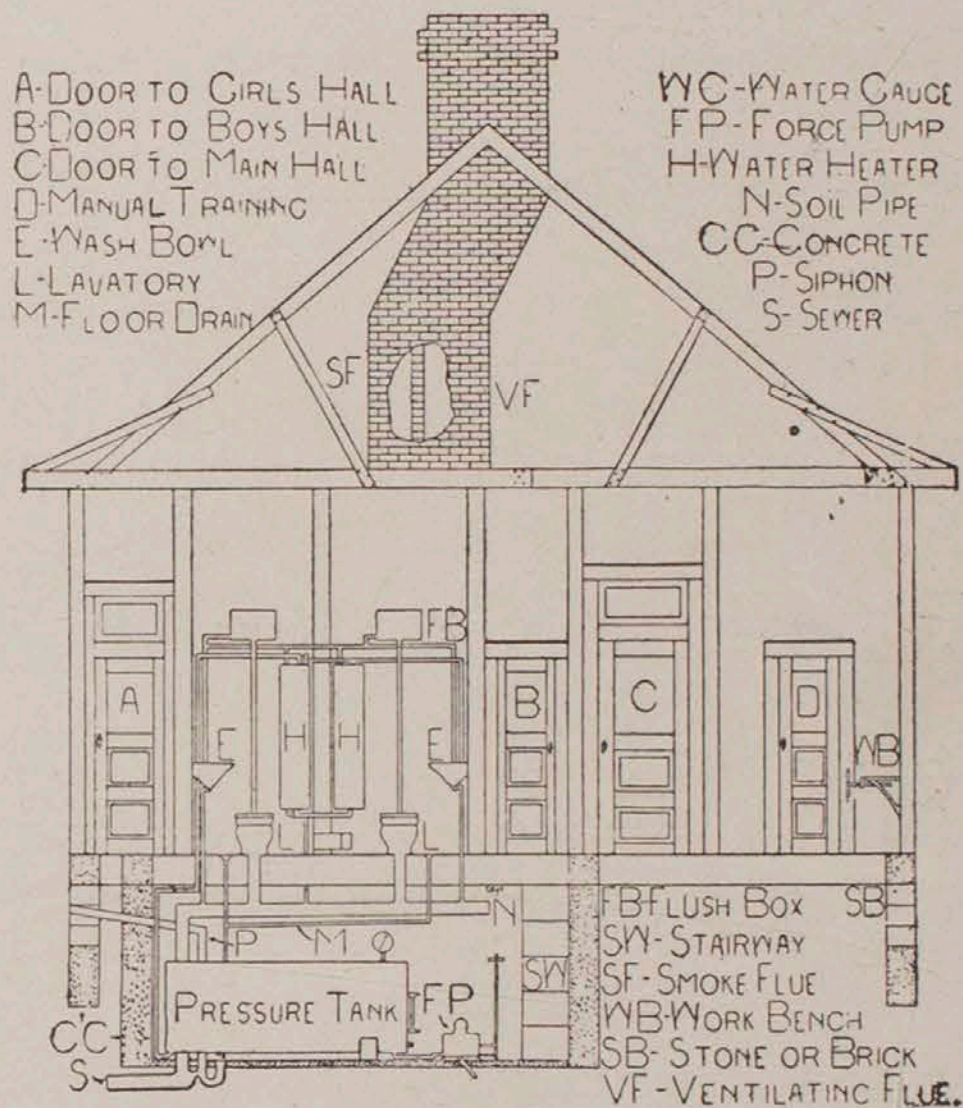 A-DOOR TO GIRLS HALL
B-DOOR TO BOYS HALL
C-DOOR TO MAIN HALL
D-MANUAL TRAINING
E-WASH BOWL
L-LAVATORY
M-FLOOR DRAIN
WG-WATER GAUGE
FP-FORCE PUMP
H-WATER HEATER
N-SOIL PIPE
CC-CONCRETE
P-SIPHON
S-SEWER
SF
VF
FB
A
E
H
H
E
B
C
D
WB
L
L
N
P
M
PRESSURE TANK
FP
SW
CC
S
FB-FLUSH BOX
SB
SW-STAIRWAY
SF-SMOKE FLUE
WB-WORK BENCH
SB-STONE OR BRICK
VF-VENTILATING FLUE.